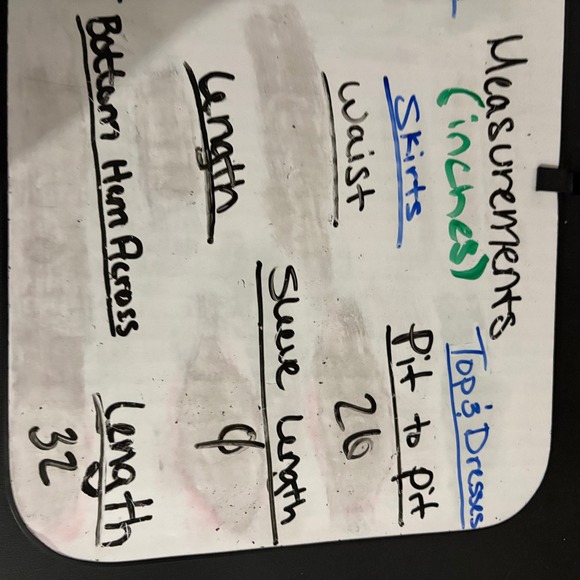 Measurements
(inches)
Skirts
Waist
Length
Bottom Hem Across
Tops Dresses
Pit to Pit
26
Sleeve Length
Length
32